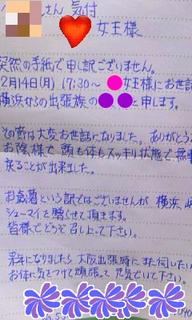 さん 気付
女王様
突然の手紙で申し訳ございません。
12月14日(月) 17:30〜 女王様にお世話
横浜からの出張族の と申します。
その節は大変お世話になりました。ありがとう
お陰様で 頭も体もスッキリ状態で無事
戻ることが出来ました。
お歳暮という訳ではございませんが 横浜
シューマイを贈らせて頂きます。
皆様でどうぞ召し上って下さい。
来年になりましたら 大阪出張時にまた伺いたい
お体に気をつけて頑張って 下さい。